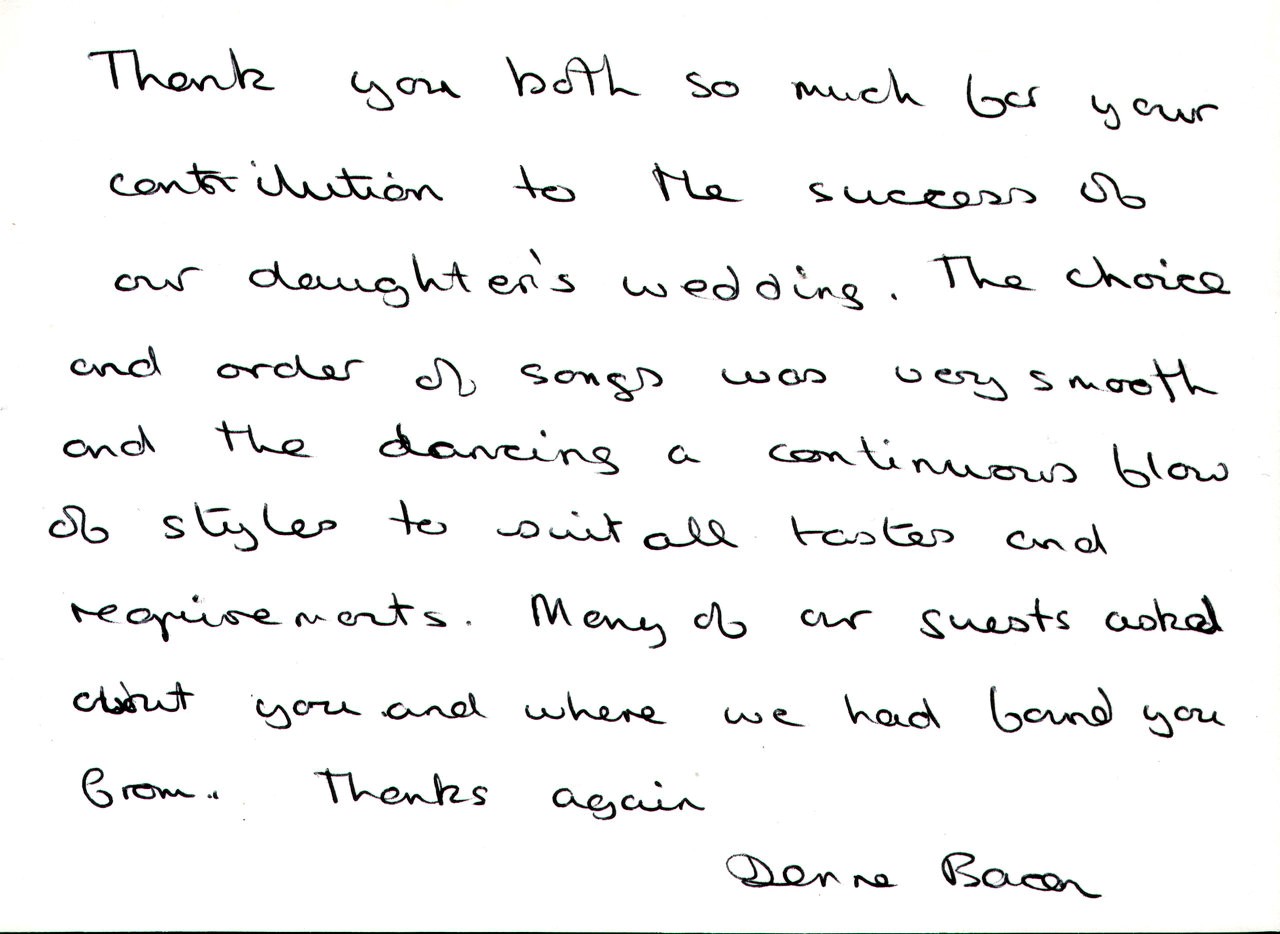 Thank you both so much for your
contribution to the success of
our daughter's wedding. The choice
and order of songs was very smooth
and the dancing a continuous flow
of styles to suit all tastes and
requirements. Many of our guests asked
about you and where we had found you
from.. Thanks again
Bacon